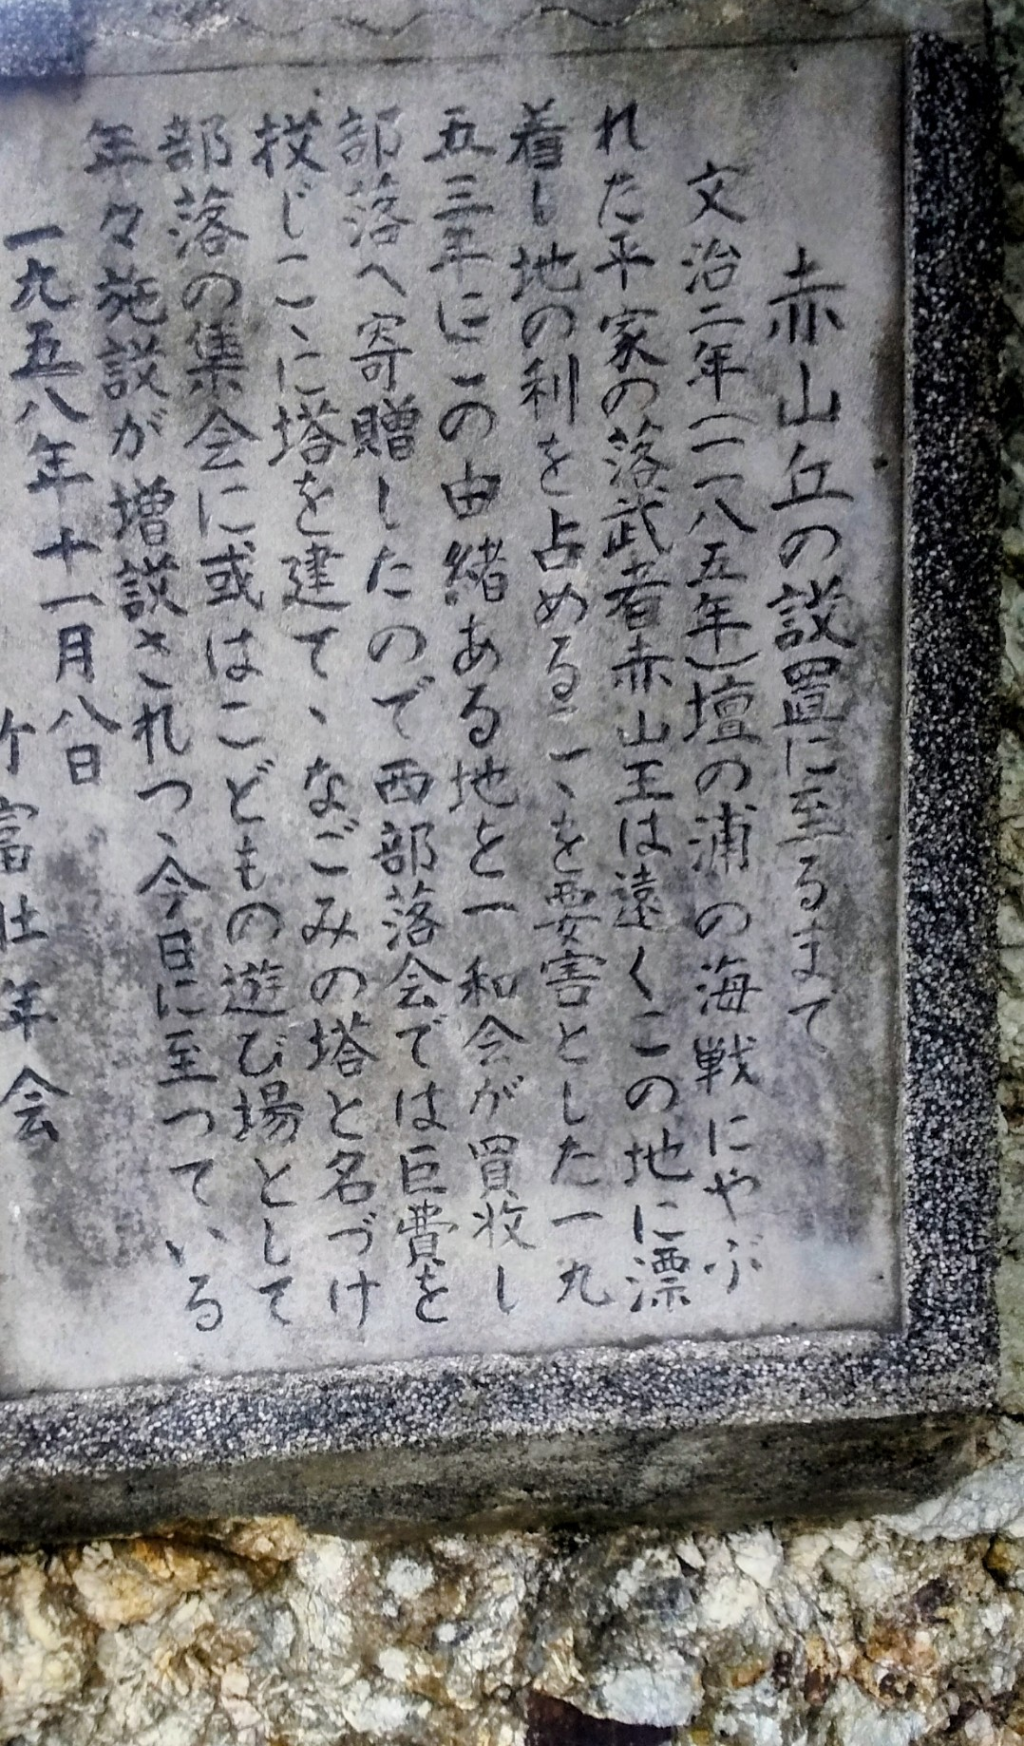 赤山丘の設置に至るまて
文治二年(一一八五年)壇の浦の海戦にやぶ
れた平家の落武者赤山王は遠くこの地に漂
着し地の利を占めるこゝを要害とした一九
五三年にこの由緒ある地と一和会が買收し
部落へ寄贈したので西部落会では巨費を
投じこゝに塔を建て、なごみの塔と名づけ
部落の集会に或はこどもの遊び場として
年々施設が増設されつゝ今日に至つている
一九五八年十一月八日
竹富壮年会